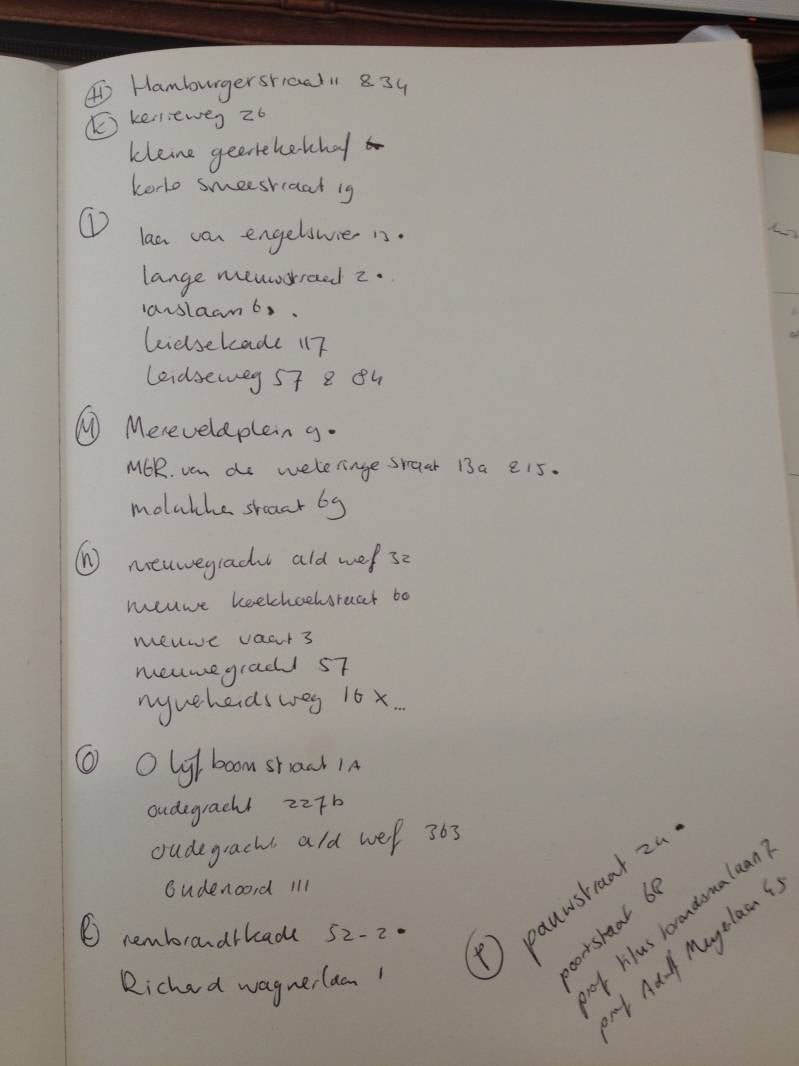 H Hamburgerstraat 11 & 34
K kersieweg 26
kleine geertekerkhof
korte smeestraat 19
L laan van engelswier 13.
lange nieuwstraat 2.
lanslaan
leidsekade 117
leidseweg 57 & 84
M Mereveldplein 9.
MGR. van de weteringe straat 13a & 15.
molukken straat 69
N nieuwegracht a/d werf 32
nieuwe koekhoekstraat 60
nieuwe vaart 3
nieuwegracht 57
nijverheidsweg 16 x...
O Olijfboomstraat 1A
oudegracht 227b
oudegracht a/d werf 363
Oudenoord 111
R rembrandtkade 52-2.
Richard wagnerlaan 1
P pauwstraat 2a.
poortstraat 68
prof titus brandsmalaan 7
prof Adolf Meyerlaan 45